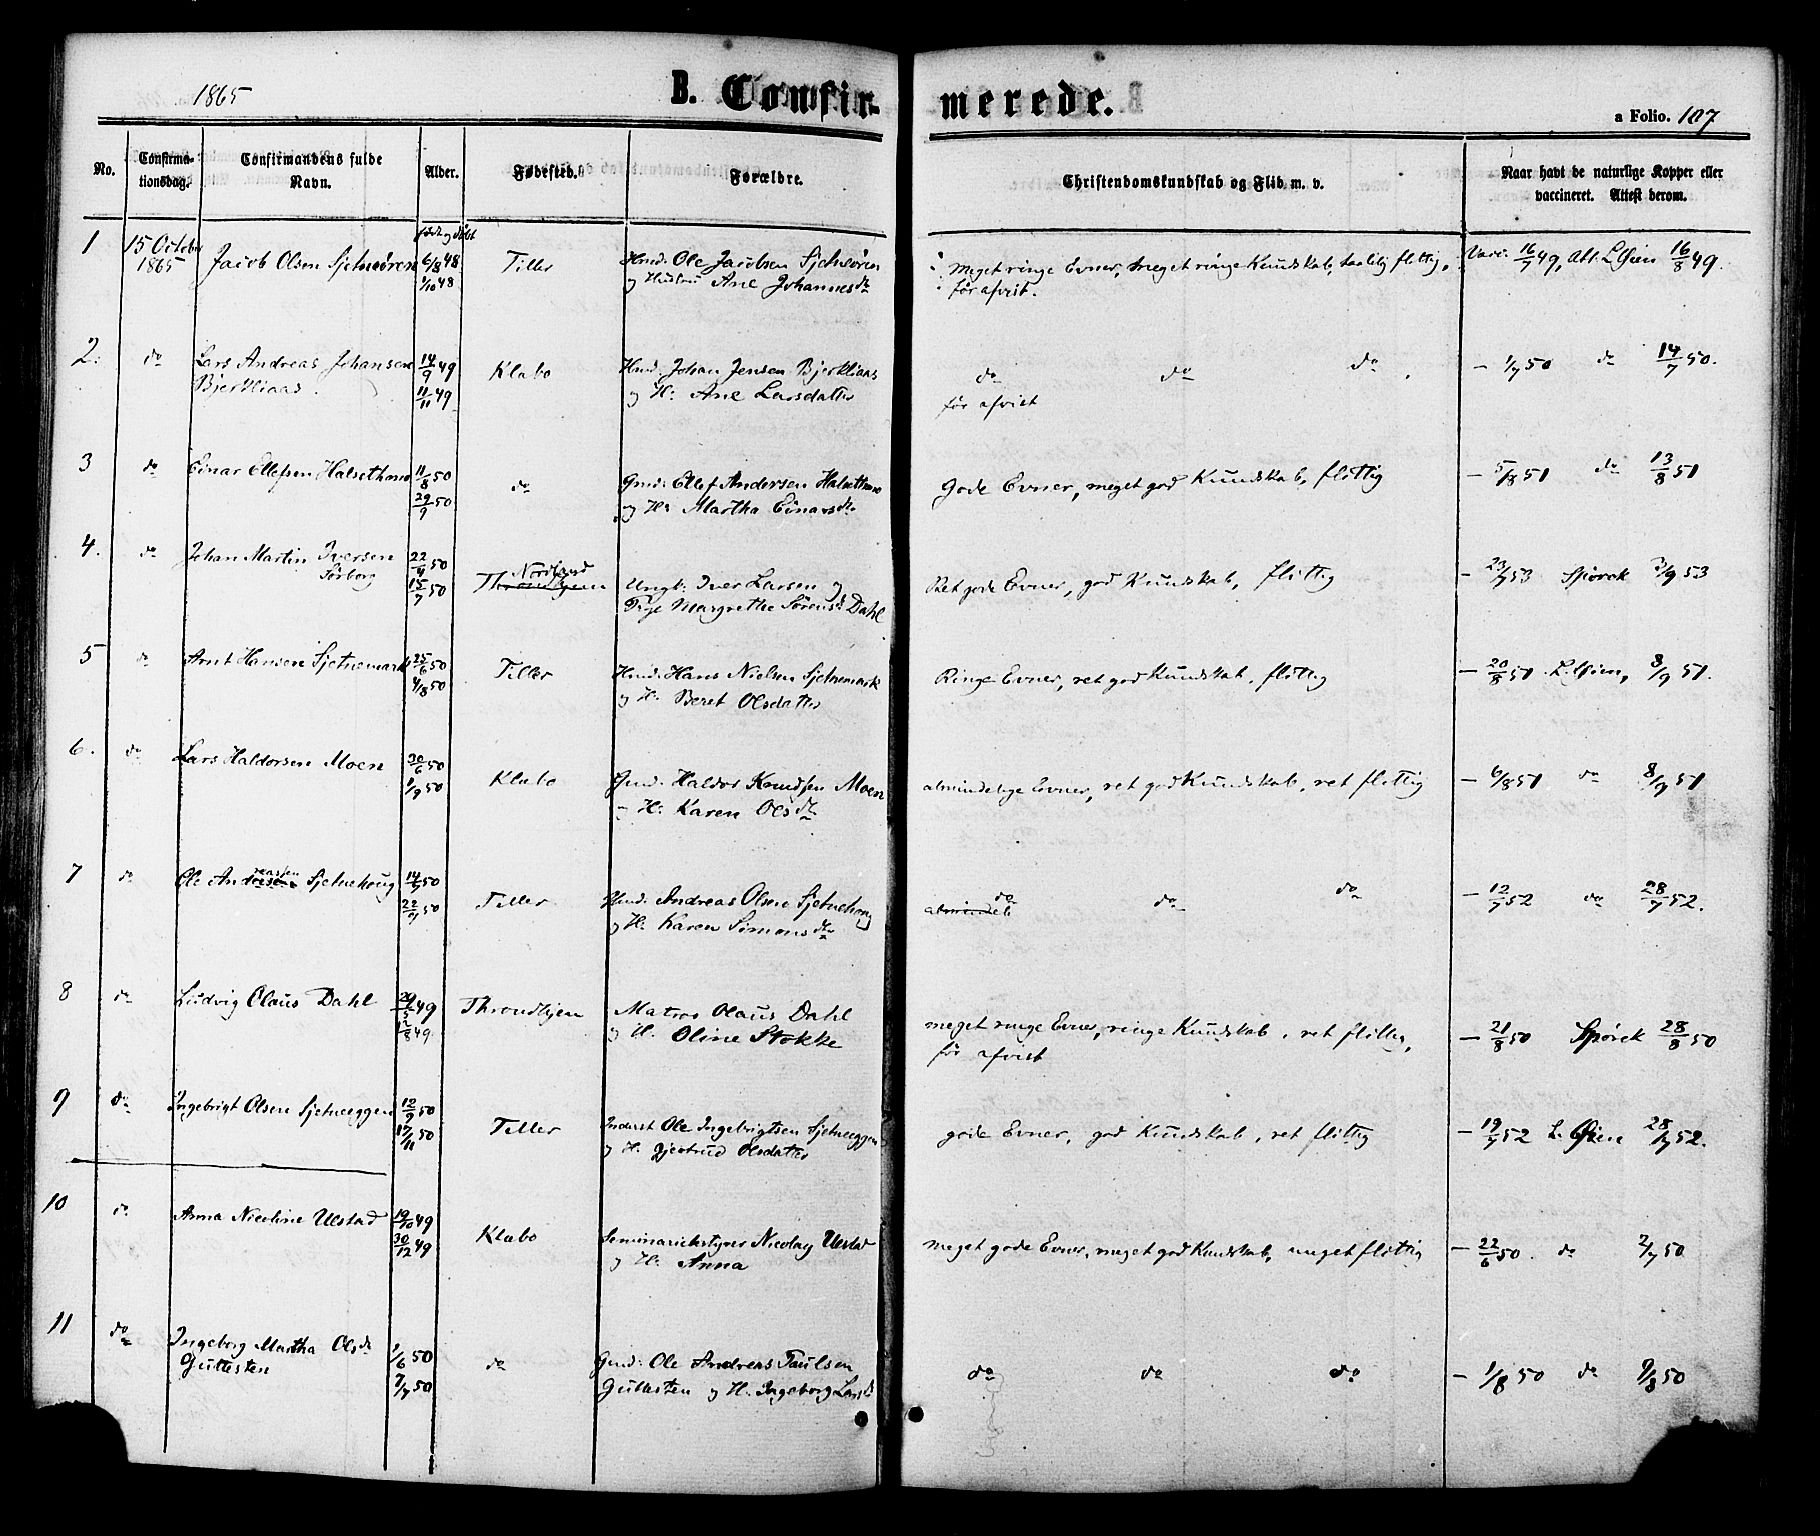 1865
B. Confirmerede.
a Folio. 107
No.
Confirmationsdag.
Confirmandens fulde Navn.
Alder.
Fødested.
Forældre.
Christendomskundskab og Flid m. v.
Naar havt de naturlige Kopper eller vaccineret. Attest derom.
født og døbt
1 15 October 1865 Jacob Olsen Sjetneören 6/8 48 Tiller Hmd. Ole Jacobsen Sjetneören meget ringe Evner, meget ringe Kundskab, taalelig flittig, Vacc. 16/7 49, Att. L. Øien 16/8 49.
1/10 48 og Hustru Ane Johannesdr. før afvist.
2. do Lars Andreas Johansen 14/9 49 Klæbo Hmd. Johan Jensen Bjerkliaas do do do - 1/7 50 do 14/7 50.
Bjerkliaas. 11/11 49. og H: Ane Larsdatter før afvist
3 do Einar Ellefsen Halsethmo 11/8 50 do Gmd: Ellef Andersen Halsethmo Gode Evner, meget god Kundskab, flittig - 5/8 51 do 13/8 51
29/9 50 og H: Martha Einarsdr.
4. do Johan Martin Iversen 22/4 50 Nordland Ungk: Iver Larsen og Ret gode Evner, god Kundskab, flittig - 23/7 53 Spörck 3/9 53
Sörborg 15/7 50 Throndhjem Pige Margrethe Sörensdr Dahl
5 do Arnt Hansen Sjetnemark 25/6 50 Tiller Hmd: Hans Nielsen Sjetnemark Ringe Evner, ret god Kundskab, flittig - 20/8 51 L. Øien, 8/9 51.
4/8 50 og H: Beret Olsdatter
6. do Lars Haldorsen Moen 30/6 50 Klæbo Gmd: Haldor Knudsen Moen almindelige Evner, ret god Kundskab, ret flittig - 6/8 51 do 8/9 51
1/9 50 - H: Karen Olsdr.
7 do Ole Andreasen Sjetnehoug 14/7 50 Tiller Hmd: Andreas Olsen Sjetnehoug almindeli do do do - 12/7 52 do 28/7 52.
22/9 50 og H: Karen Simonsdr
8 do Ludvig Olaus Dahl 49 Throndhjem Matros Olaus Dahl meget ringe Evner, ringe Kundskab, ret flittig, - 21/8 50 Spörck 28/8 50
49. og H: Oline Stokke før afvist
9 do Ingebrigt Olsen Sjetneeggen 12/9 50 Tiller Inderst Ole Ingebrigtsen Sjetneeggen gode Evner, god Kundskab, ret flittig - 19/7 52 L. Øien 28/7 52.
17/11 50 og H. Gjertrud Olsdatter
10 do Anna Nicoline Ulstad 19/10 49 Klæbo Seminariebestyrer Nicolay Ulstad meget gode Evner, meget god Kundskab, meget flittig - 22/6 50. do 2/7 50
30/12 49 og H: Anna
11 do Ingeborg Martha Olsdr 1/6 50 do Gmd: Ole Andreas Paulsen do do do - 1/8 50 do 9/8 50
Guttesten 7/7 50 Guttesten og H. Ingeborg Larsdr